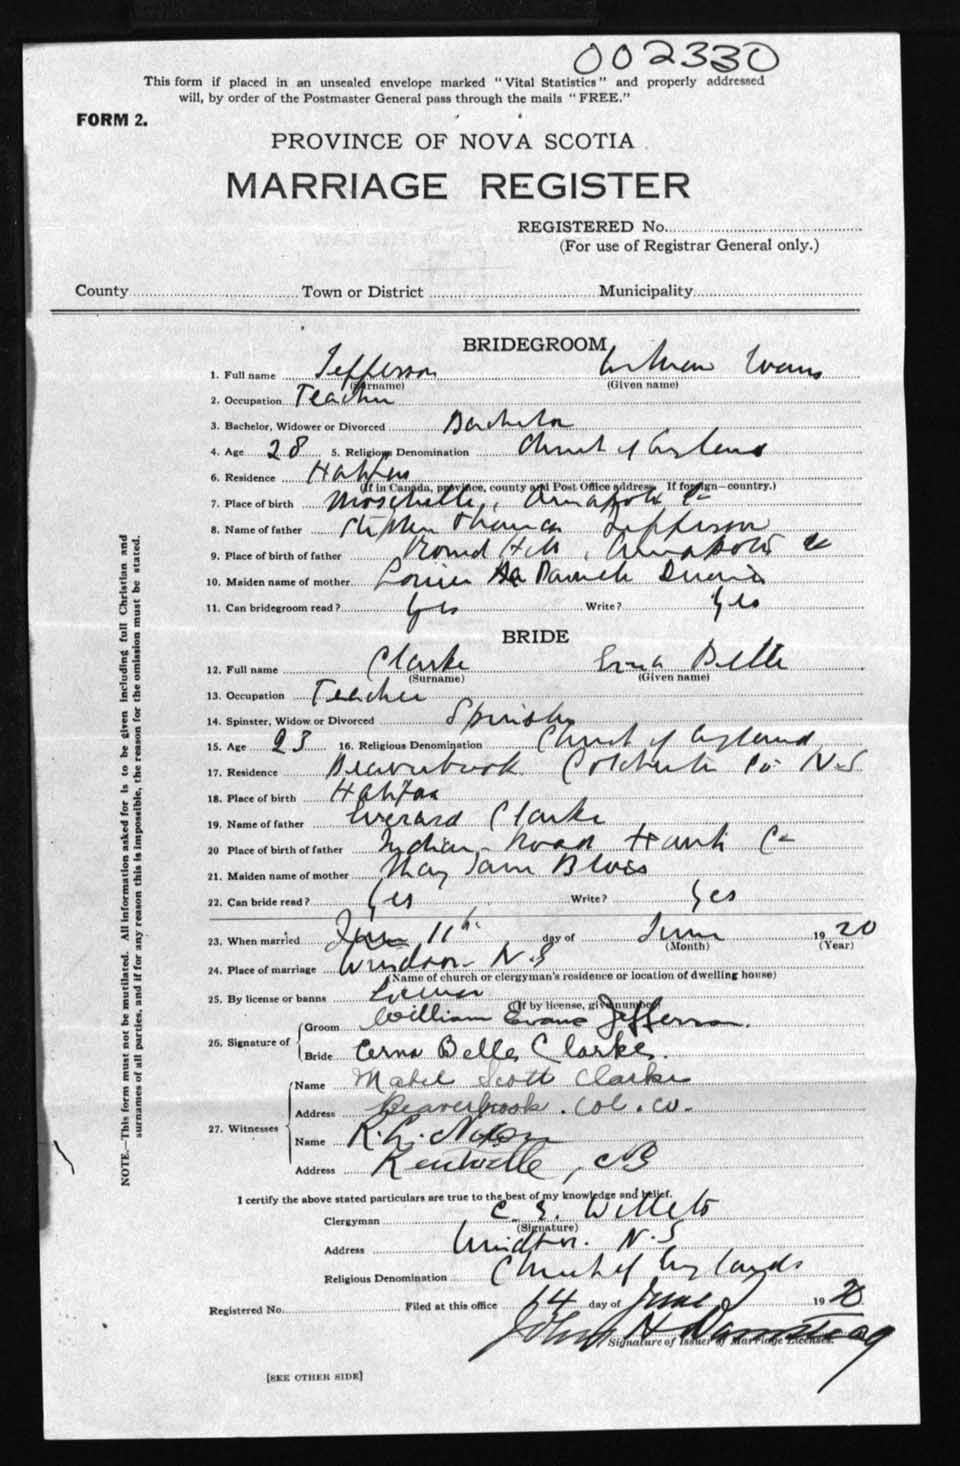 002330
This form if placed in an unsealed envelope marked "Vital Statistics" and properly addressed
will, by order of the Postmaster General pass through the mails "FREE."
FORM 2.
PROVINCE OF NOVA SCOTIA
MARRIAGE REGISTER
REGISTERED No.
(For use of Registrar General only.)
County Town or District Municipality
BRIDEGROOM
1. Full name Jefferson Evans
(Surname) (Given name)
2. Occupation Teacher
3. Bachelor, Widower or Divorced Bachelor
4. Age 28 5. Religious Denomination Church of England
6. Residence Halifax
(If in Canada, province, county and Post Office address. If foreign—country.)
7. Place of birth Moschelle, Annapolis Co
8. Name of father Stephen Thomas Jefferson
9. Place of birth of father Round Hill, Annapolis Co
10. Maiden name of mother Louisa
11. Can bridegroom read? Yes Write? Yes
BRIDE
12. Full name Clarke Erna Belle
(Surname) (Given name)
13. Occupation Teacher
14. Spinster, Widow or Divorced Spinster
15. Age 23 16. Religious Denomination Church of England
17. Residence Beaverbrook Colchester Co. N.S
18. Place of birth Halifax
19. Name of father Everard Clarke
20 Place of birth of father Indian Road Hants Co
21. Maiden name of mother May Jane Blois
22. Can bride read? Yes Write? Yes
23. When married 11th day of June 1920
(Month) (Year)
24. Place of marriage Windsor N.S
(Name of church or clergyman's residence or location of dwelling house)
25. By license or banns License
(If by license, give number)
26. Signature of Groom William Evans Jefferson.
Bride Erna Belle Clarke.
27. Witnesses Name Mabel Scott Clarke
Address Beaverbrook. Col. Co.
Name R. L. Nixon
Address Kentville, NS
I certify the above stated particulars are true to the best of my knowledge and belief.
Clergyman C. E. Willets
(Signature)
Address Windsor. N.S
Religious Denomination Church of England
Registered No. Filed at this office 14 day of June 1920
John H
Signature of Issuer of Marriage Licenses.
[SEE OTHER SIDE]
NOTE.—This form must not be mutilated. All information asked for is to be given including full Christian and
surnames of all parties, and if for any reason this is impossible, the reason for the omission must be stated.